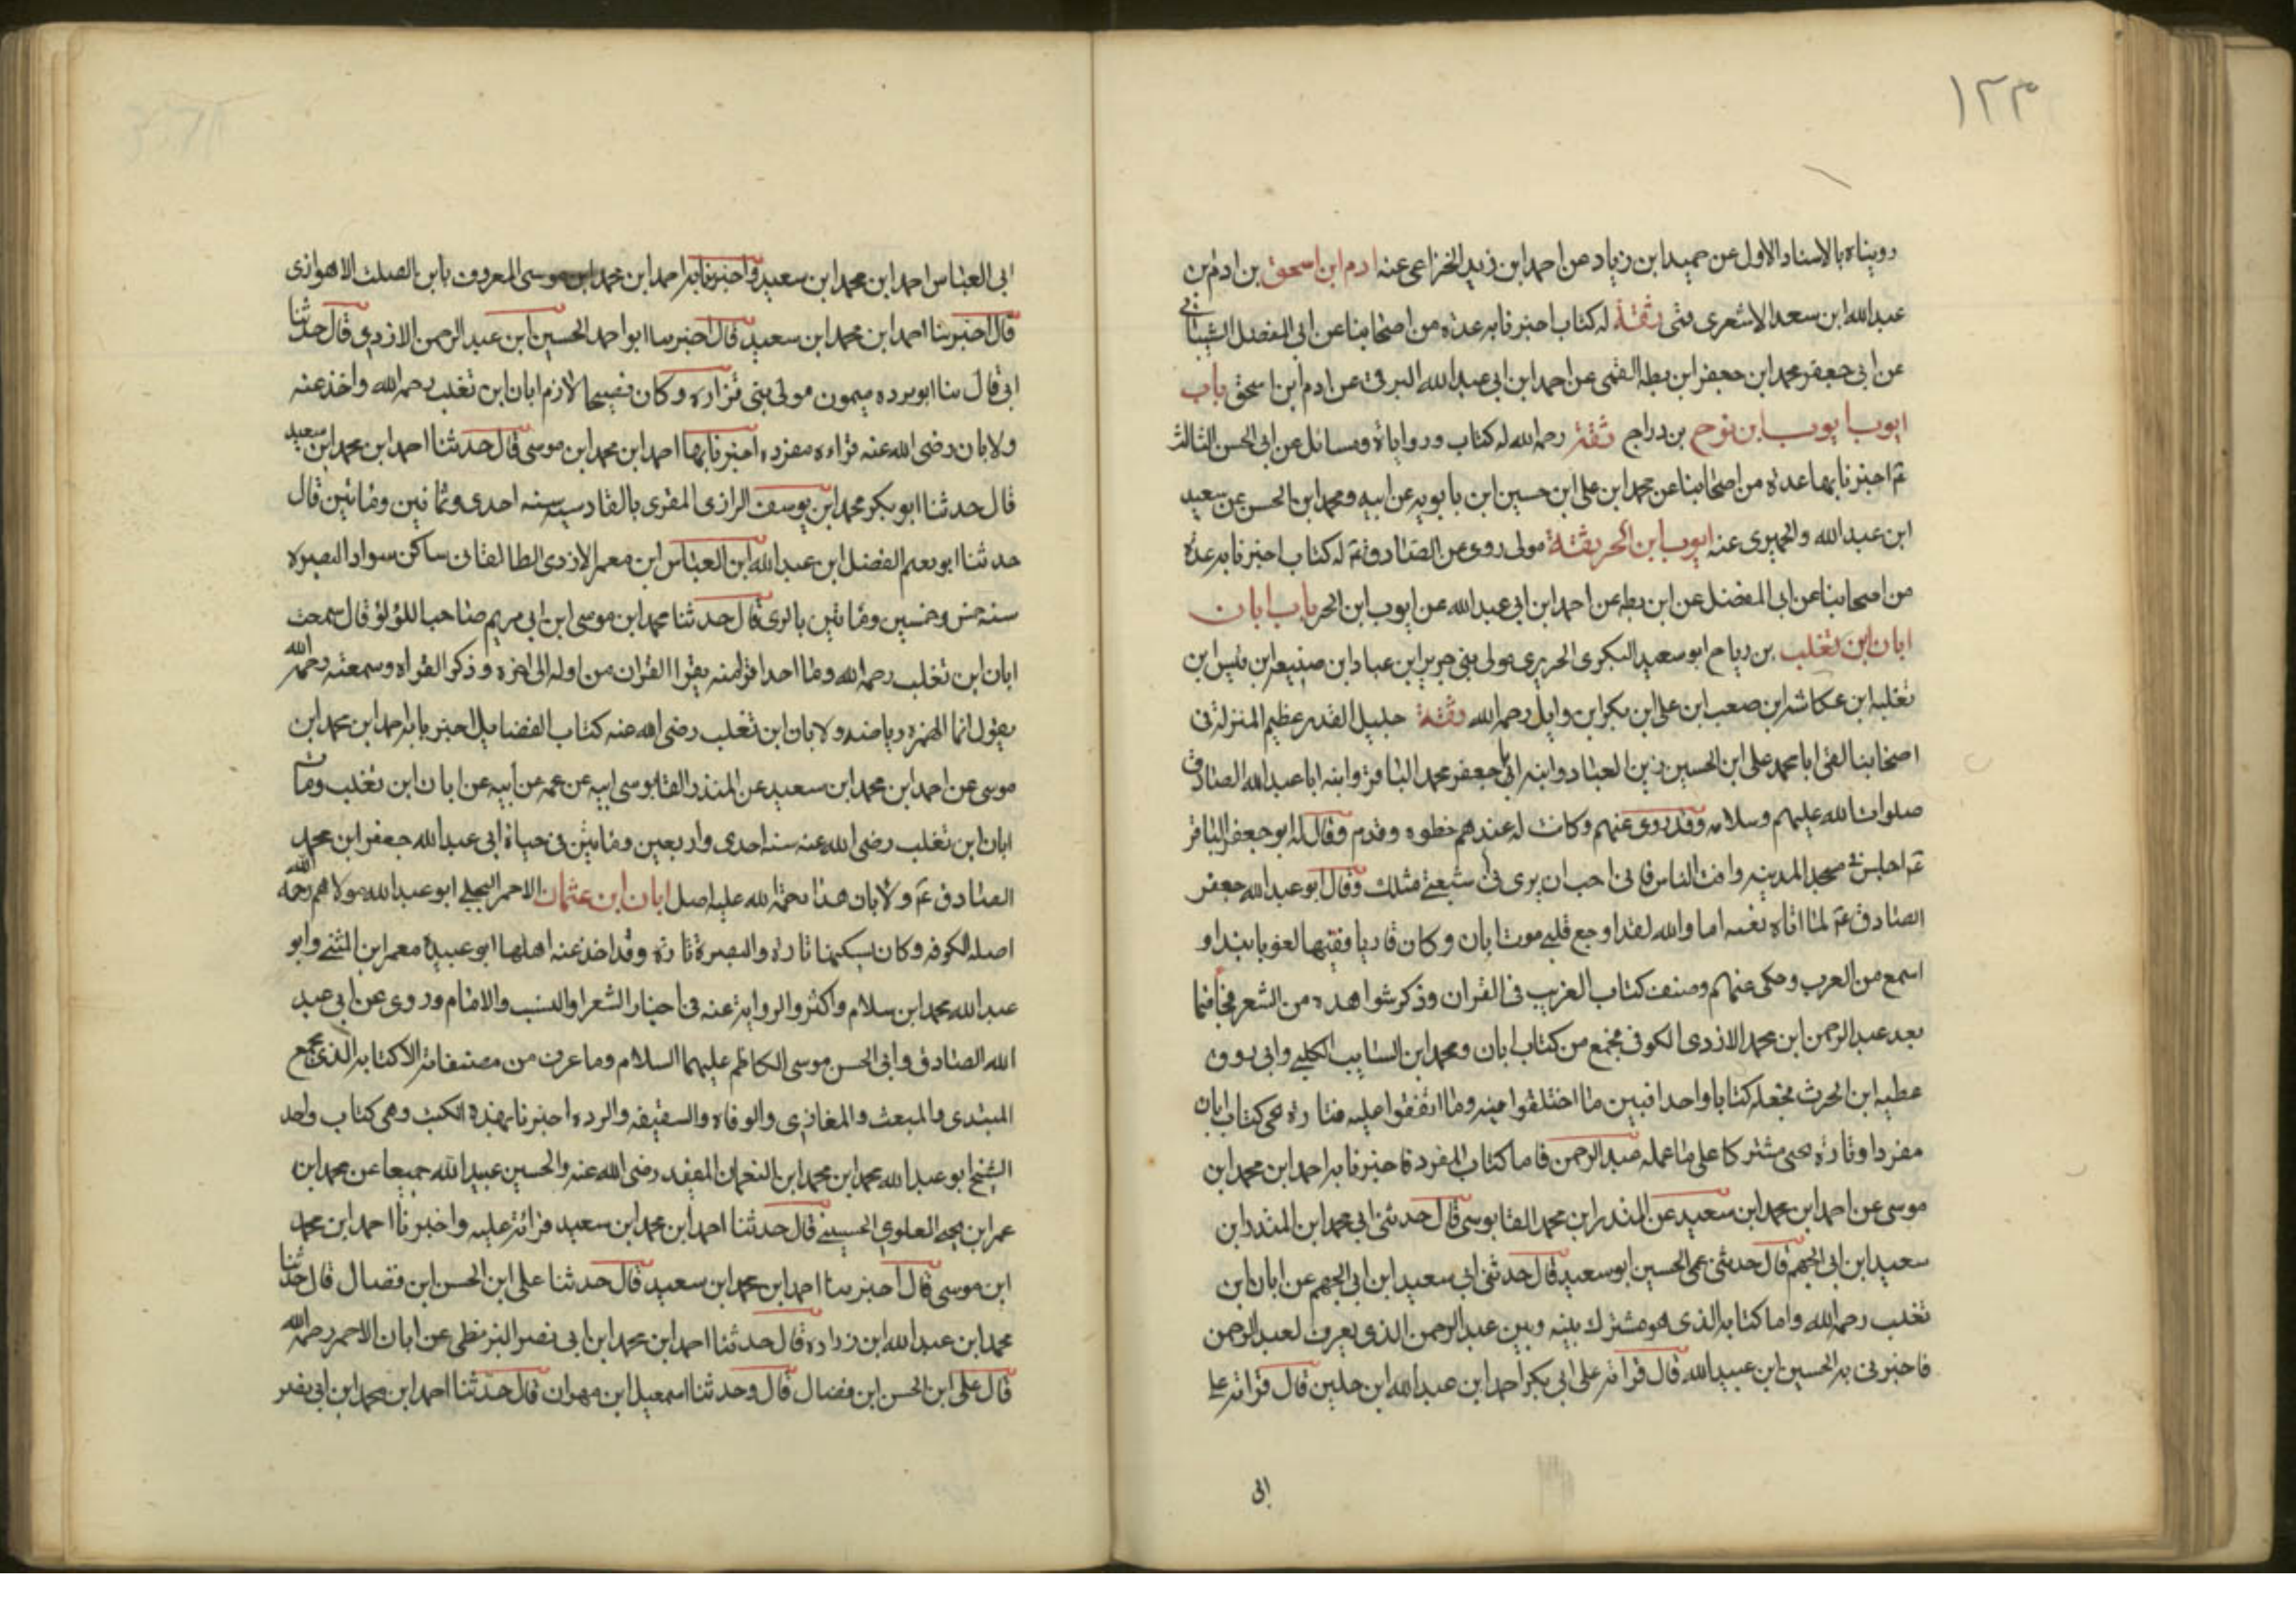 ١٢٣
رويناه بالاسناد الاول عن حميد ابن زياد عن احمد ابن زيد الخزاعى عنه ادم ابن اسحق بن ادم بن
عبدالله ابن سعد الاشعرى قمى ثقة له كتاب اخبرنا به عدة من اصحابنا عن ابى المفضل الشيبانى
عن ابى جعفر محمد ابن جعفر ابن بطه القمى عن احمد ابن ابى عبدالله البرقى عن ادم ابن اسحق باب
ايوب ايوب ابن نوح بن دراج ثقة رحمه الله له كتاب وروايات ومسائل عن ابى الحسن الثالث
ع اخبرنا بها عدة من اصحابنا عن محمد ابن على ابن حسين ابن بابويه عن ابيه ومحمد ابن الحسن عن سعيد
ابن عبدالله والحميرى عنه ايوب ابن الحر ثقة مولى روى عن الصادق ع له كتاب اخبرنا به عدة
من اصحابنا عن ابى المفضل عن ابن بطه عن احمد ابن ابى عبدالله عن ايوب ابن الحر باب ابان
ابان ابن تغلب بن رياح ابو سعيد البكرى الحريرى مولى بنى جرير ابن عباد ابن ضبيعه ابن قيس ابن
ثعلبه ابن عكاشه ابن صعب ابن على ابن بكر ابن وايل رحمه الله وثقة جليل القدر عظيم المنزلة فى
اصحابنا لقى ابا محمد على ابن الحسين زين العباد وابنه ابا جعفر محمد الباقر وابنه ابا عبدالله الصادق
صلوات الله عليهم وسلامه وقد روى عنهم وكانت له عندهم خطوه وقدم وقال له ابو جعفر الباقر
ع اجلس فى مسجد المدينه وافت الناس فانى احب ان يرى فى شيعتى مثلك وقال ابو عبدالله جعفر
الصادق ع لما اتاه نعيه اما والله لقد اوجع قلبى موت ابان وكان قاريا فقيها لغويا بنداو
اسمع من العرب وحكى عنهم وصنف كتاب الغريب فى القران وذكر شواهده من الشعر فجا فيما
بعد عبدالرحمن ابن محمد الازدى الكوفى فجمع من كتاب ابان ومحمد ابن السايب الكلبى وابى روق
عطيه ابن الحرث فجعله كتابا واحدا فبين ما اختلفوا فيه وما اتفقوا عليه فتارة يحى كتاب ابان
مفردا وتارة يحى مشتركا على ما عمله عبدالرحمن فاما كتاب المفرد فاخبرنا به احمد ابن محمد ابن
موسى عن احمد ابن محمد ابن سعيد عن المنذر ابن محمد القابوسى قال حدثنى ابى محمد ابن المنذر ابن
سعيد ابن ابى الجهم قال حدثنى عمى الحسين ابو سعيد قال حدثنى ابى سعيد ابن ابى الجهم عن ابان ابن
تغلب رحمه الله واما كتابه الذى هو مشترك بينه وبين عبدالرحمن الذى يعرف لعبد الرحمن
فاخبرنى به الحسين ابن عبيدالله قال قراته على ابى بكر احمد ابن عبدالله ابن جلين قال قراته على
ابى
ابى العباس احمد ابن محمد ابن سعيد واخبرنا به احمد ابن محمد ابن موسى المعروف بابن الصلت الاهوازى
قال اخبرنا احمد ابن محمد ابن سعيد قال اخبرنا ابو احمد الحسين ابن عبدالرحمن الازدى قال حدثنا
ابى قال نا ابو برده ميمون مولى بنى فزاره وكان فصيحا لازم ابان ابن تغلب رحمه الله واخذ عنه
ولابان رضى الله عنه قراءه مفرده اخبرنا بها احمد ابن محمد ابن موسى قال حدثنا احمد ابن محمد ابن سعيد
قال حدثنا ابو بكر محمد ابن يوسف الرازى المقرى بالقادسيه سنه احدى وثمانين ومائتين قال
حدثنا ابو نعيم الفضل ابن عبدالله ابن العباس ابن معمر الازدى الطالقانى ساكن سواد البصره
سنه خمس وخمسين ومائتين بالرى قال حدثنا محمد ابن موسى ابن ابى مريم صاحب اللؤلؤ قال سمعت
ابان ابن تغلب رحمه الله وما احدا قرا منه يقرا القران من اوله الى اخره وذكر القراه وسمعته رحمه الله
يقول انما الهمزه رياضه ولابان ابن تغلب رضى الله عنه كتاب الفضايل اخبرنا به احمد ابن محمد ابن
موسى عن احمد ابن محمد ابن سعيد عن المنذر القابوسى ابيه عن عمه عن ابيه عن ابان ابن تغلب ومات
ابان ابن تغلب رضى الله عنه سنه احدى واربعين ومائتين فى حياة ابى عبدالله جعفر ابن محمد
الصادق ع ولابان هذا رحمة الله عليه اصل ابان ابن عثمان الاحمر البجلى ابو عبدالله مولاهم رحمه الله
اصله الكوفه وكان يسكنها تاره والبصرة تارة وقد اخذ عنه اهلها ابو عبيدة معمر ابن المثنى وابو
عبدالله محمد ابن سلام واكثروا الرواية عنه فى اخبار الشعرا والنسب والايام وروى عن ابى عبد
الله الصادق وابى الحسن موسى الكاظم عليهما السلام وما عرف من مصنفاته الا كتابه الذى يجمع
المبتدى والمبعث والمغازى والوفاه والسقيفه والرده اخبرنا بهذه الكتب وهى كتاب واحد
الشيخ ابو عبدالله محمد ابن محمد ابن النعمان المفيد رضى الله عنه والحسين عبيد الله جميعا عن محمد ابن
عمر ابن يحيى العلوى الحسينى قال حدثنا احمد ابن محمد ابن سعيد قرائة عليه واخبرنا احمد ابن محمد
ابن موسى قال اخبرنا احمد ابن محمد ابن سعيد قال حدثنا على ابن الحسن ابن فضال قال حدثنا
محمد ابن عبدالله ابن زراده قال حدثنا احمد ابن محمد ابن ابى نصر البزنطى عن ابان الاحمر رحمه الله
قال على ابن الحسن ابن فضال قال وحدثنا اسمعيل ابن مهران قال حدثنا احمد ابن محمد ابن ابى نصر